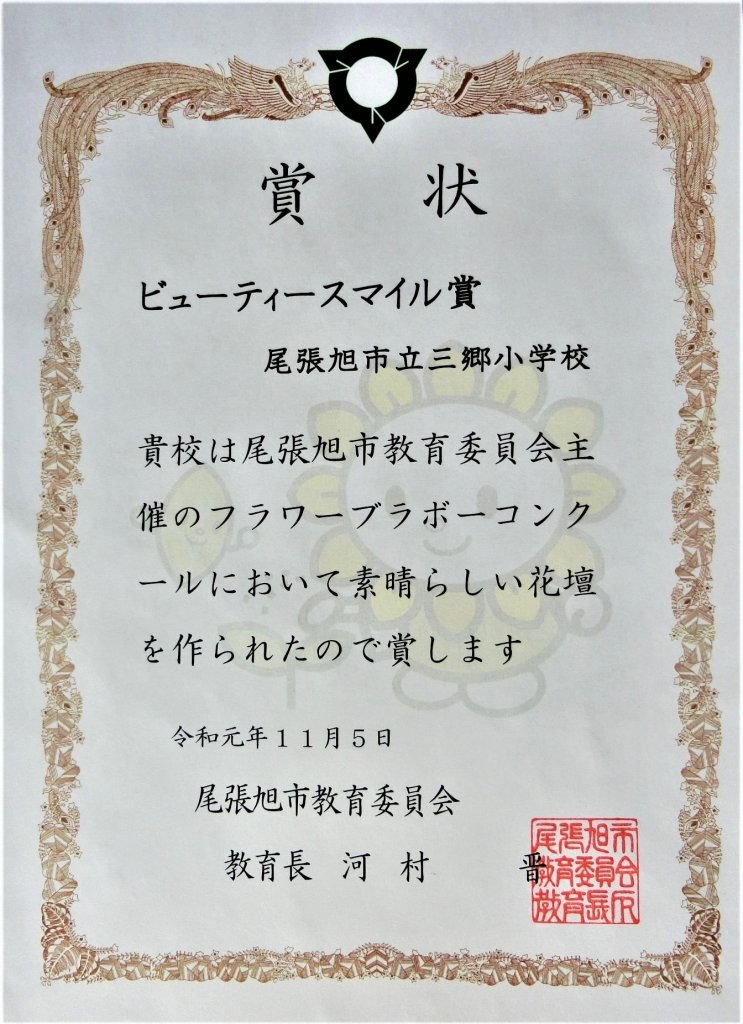 賞 状
ビューティースマイル賞
尾張旭市立三郷小学校
貴校は尾張旭市教育委員会主
催のフラワーブラボーコンク
ールにおいて素晴らしい花壇
を作られたので賞します
令和元年11月5日
尾張旭市教育委員会
教育長 河 村 晋
尾張旭市
教育委員会
教育長印